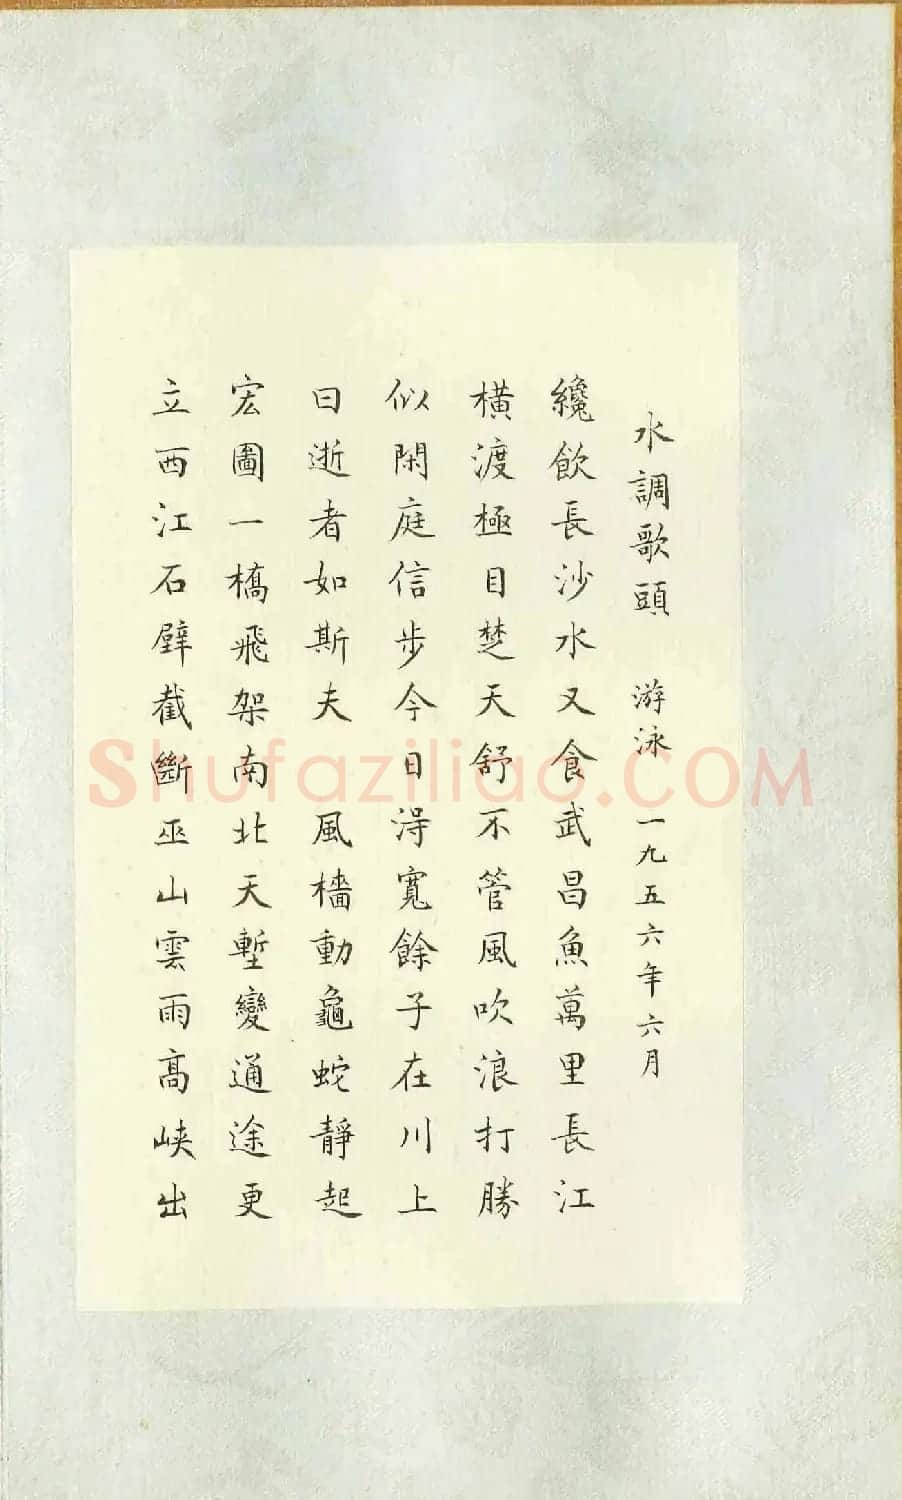 水調歌頭 游泳 一九五六年六月
纔飲長沙水又食武昌魚萬里長江
橫渡極目楚天舒不管風吹浪打勝
似閑庭信步今日得寬餘子在川上
曰逝者如斯夫 風檣動龜蛇靜起
宏圖一橋飛架南北天塹變通途更
立西江石壁截斷巫山雲雨高峽出
Shufaziliao.COM